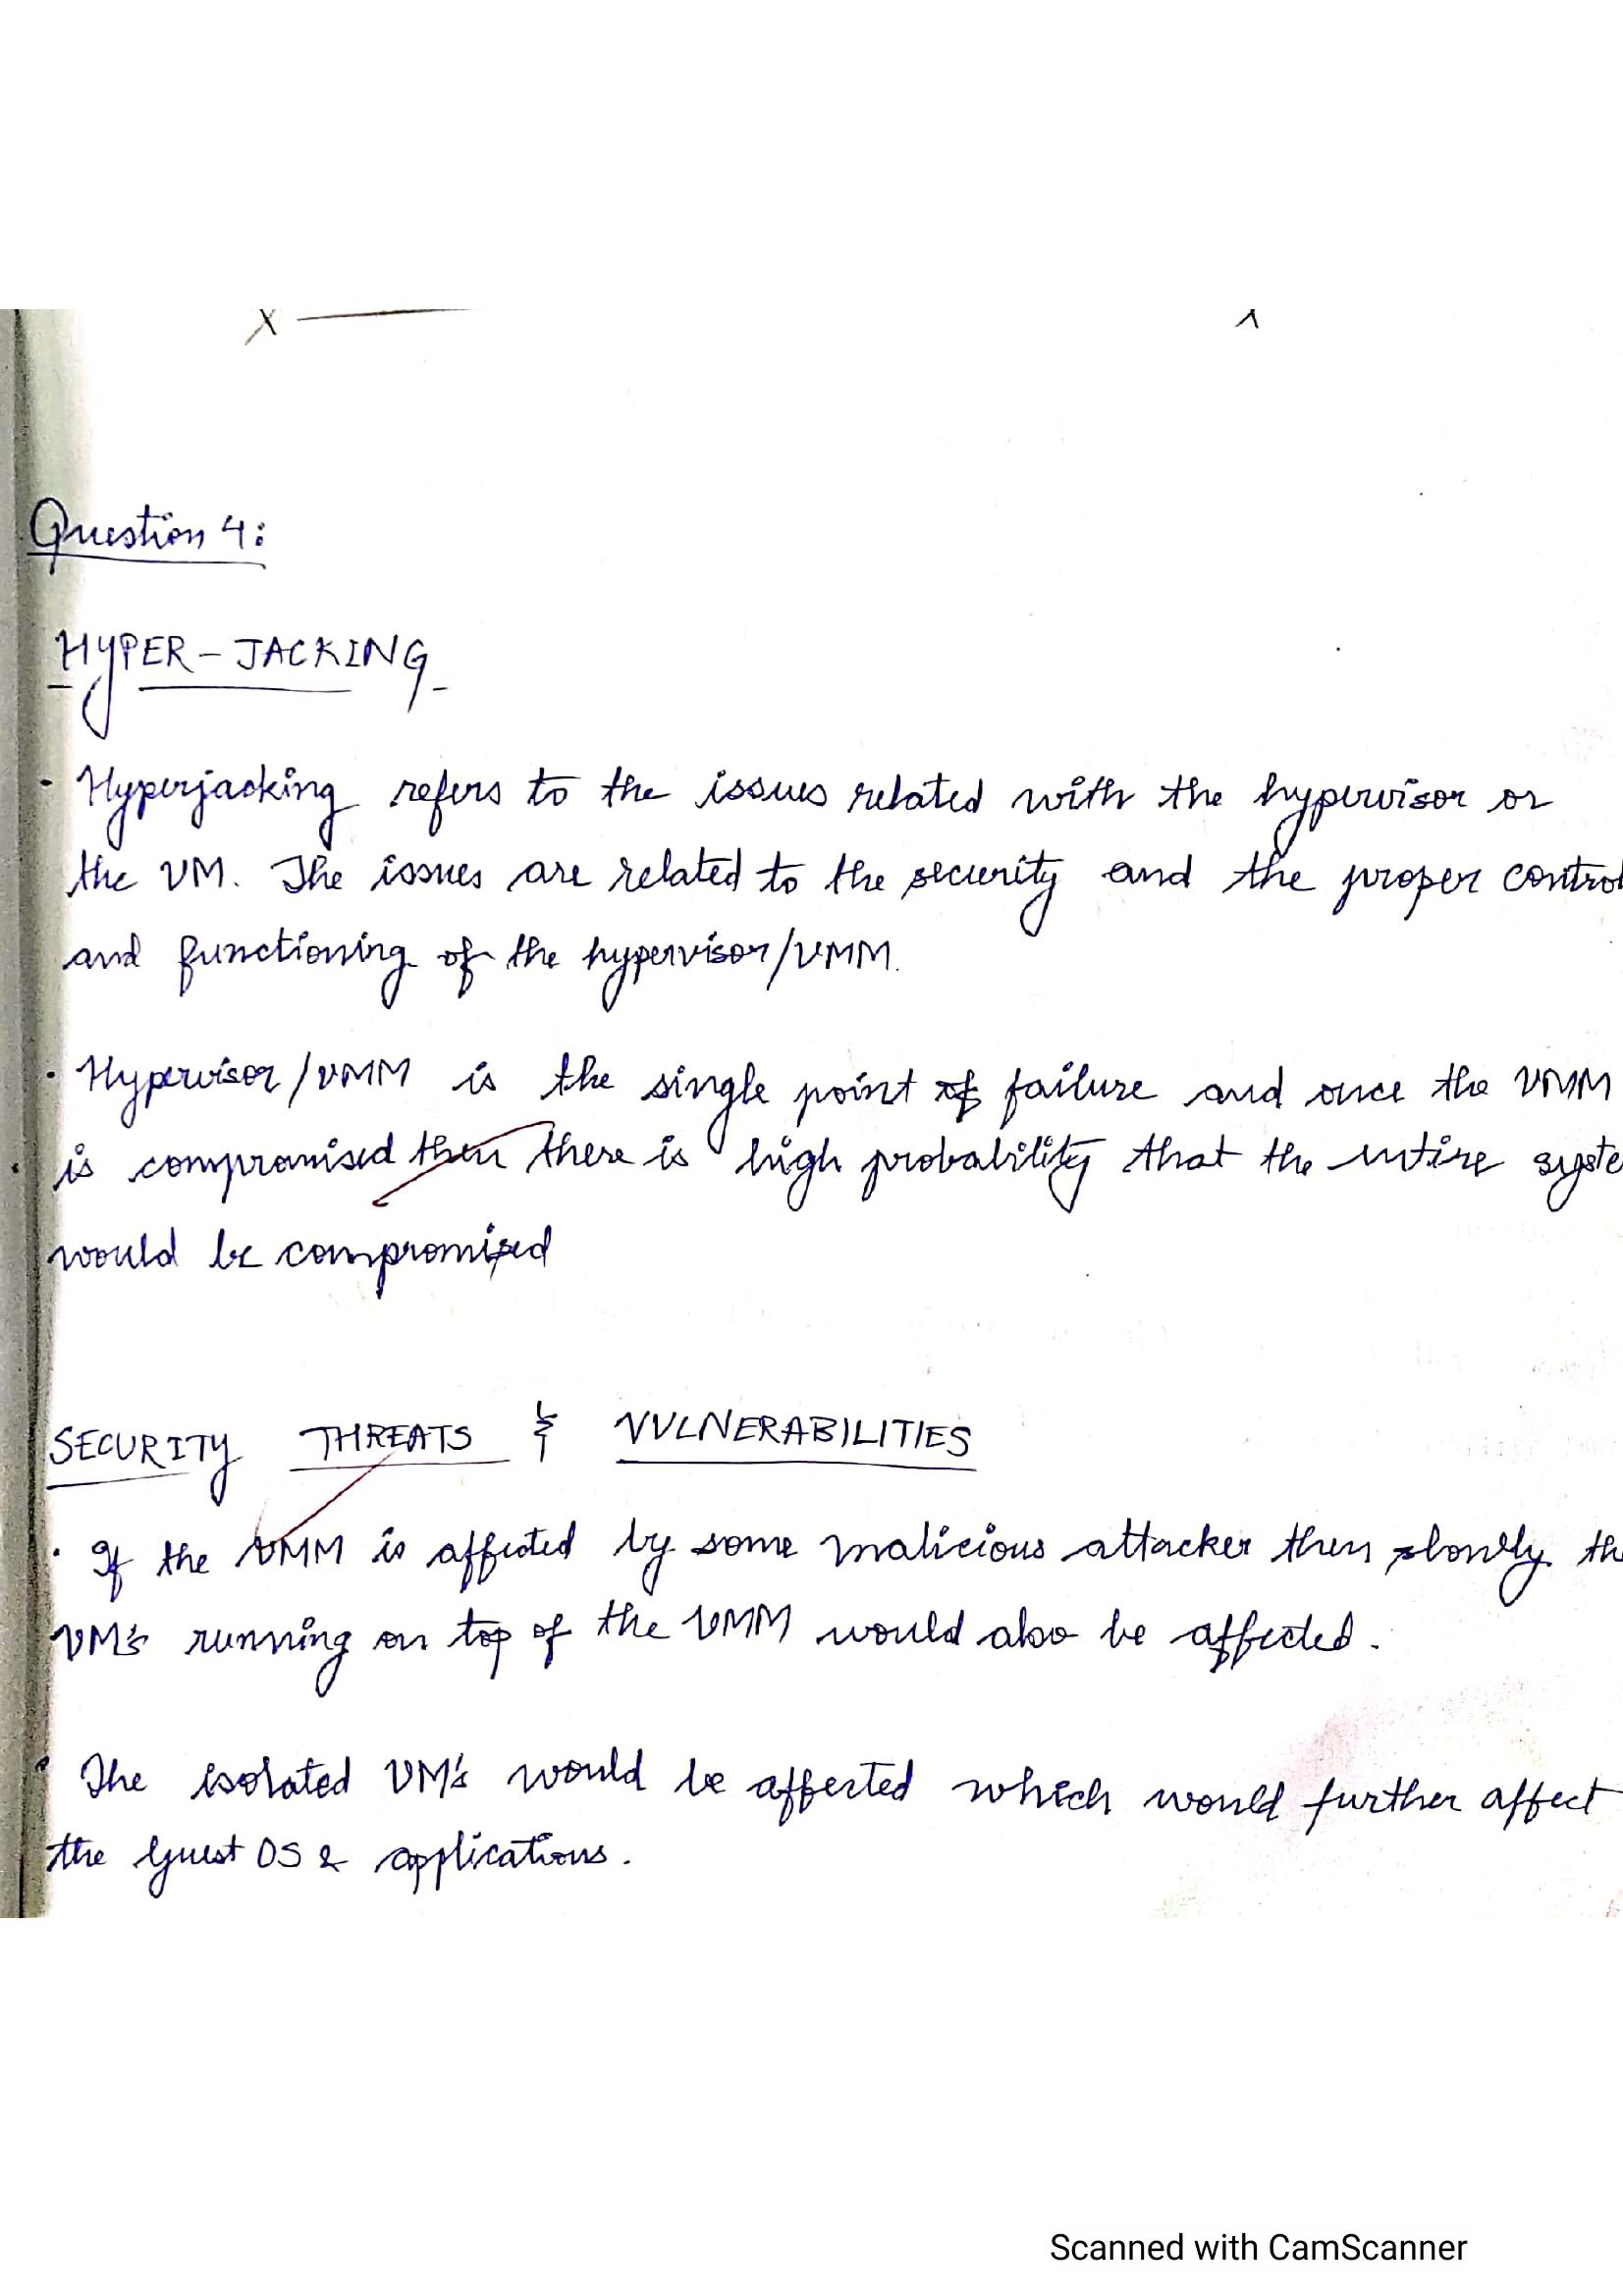 X
Question 4:
HYPER-JACKING
• Hyperjacking refers to the issues related with the hypervisor or
the VM. The issues are related to the security and the proper control
and functioning of the hypervisor/VMM.
• Hypervisor/VMM is the single point of failure and once the VMM
is compromised then there is high probability that the entire syste
would be compromised
SECURITY THREATS & VULNERABILITIES
• If the VMM is affected by some malicious attacker then slowly th
VM's running on top of the VMM would also be affected.
• The isolated VM's would be affected which would further affect
the Guest OS & applications.
Scanned with CamScanner